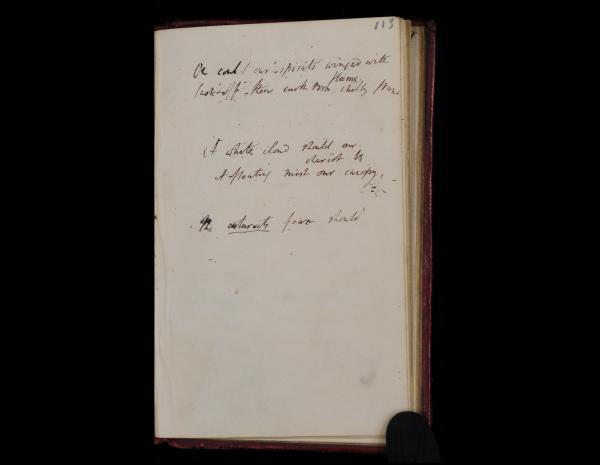 113
Or could our spirits winged with
flame,
their earth born, shelly frame
A white cloud should our
chariot be
A floating mist our canopy,
The cataracts foam should